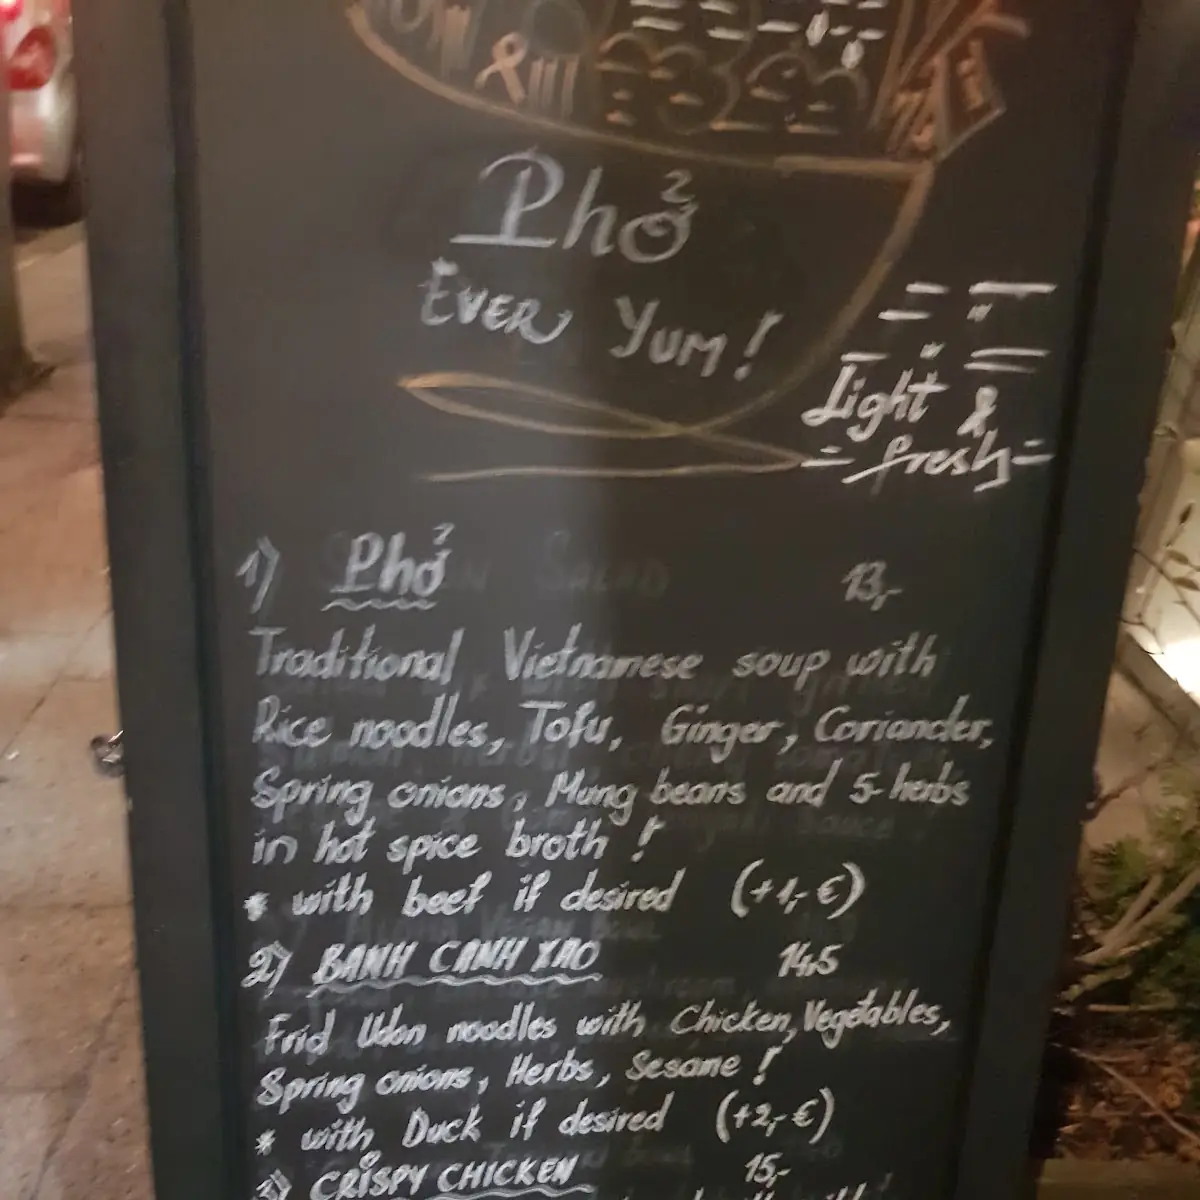 Phở
EVER YUM!
Light &
fresh
1) Phở 13,-
Traditional Vietnamese soup with
Rice noodles, Tofu, Ginger, Coriander,
Spring onions, Mung beans and 5-herbs
in hot spice broth!
* with beef if desired (+1,-€)
2) BANH CANH XAO 14,5
Frid Udon noodles with Chicken, Vegetables,
Spring onions, Herbs, Sesame!
* with Duck if desired (+2,-€)
3) CRISPY CHICKEN 15,-